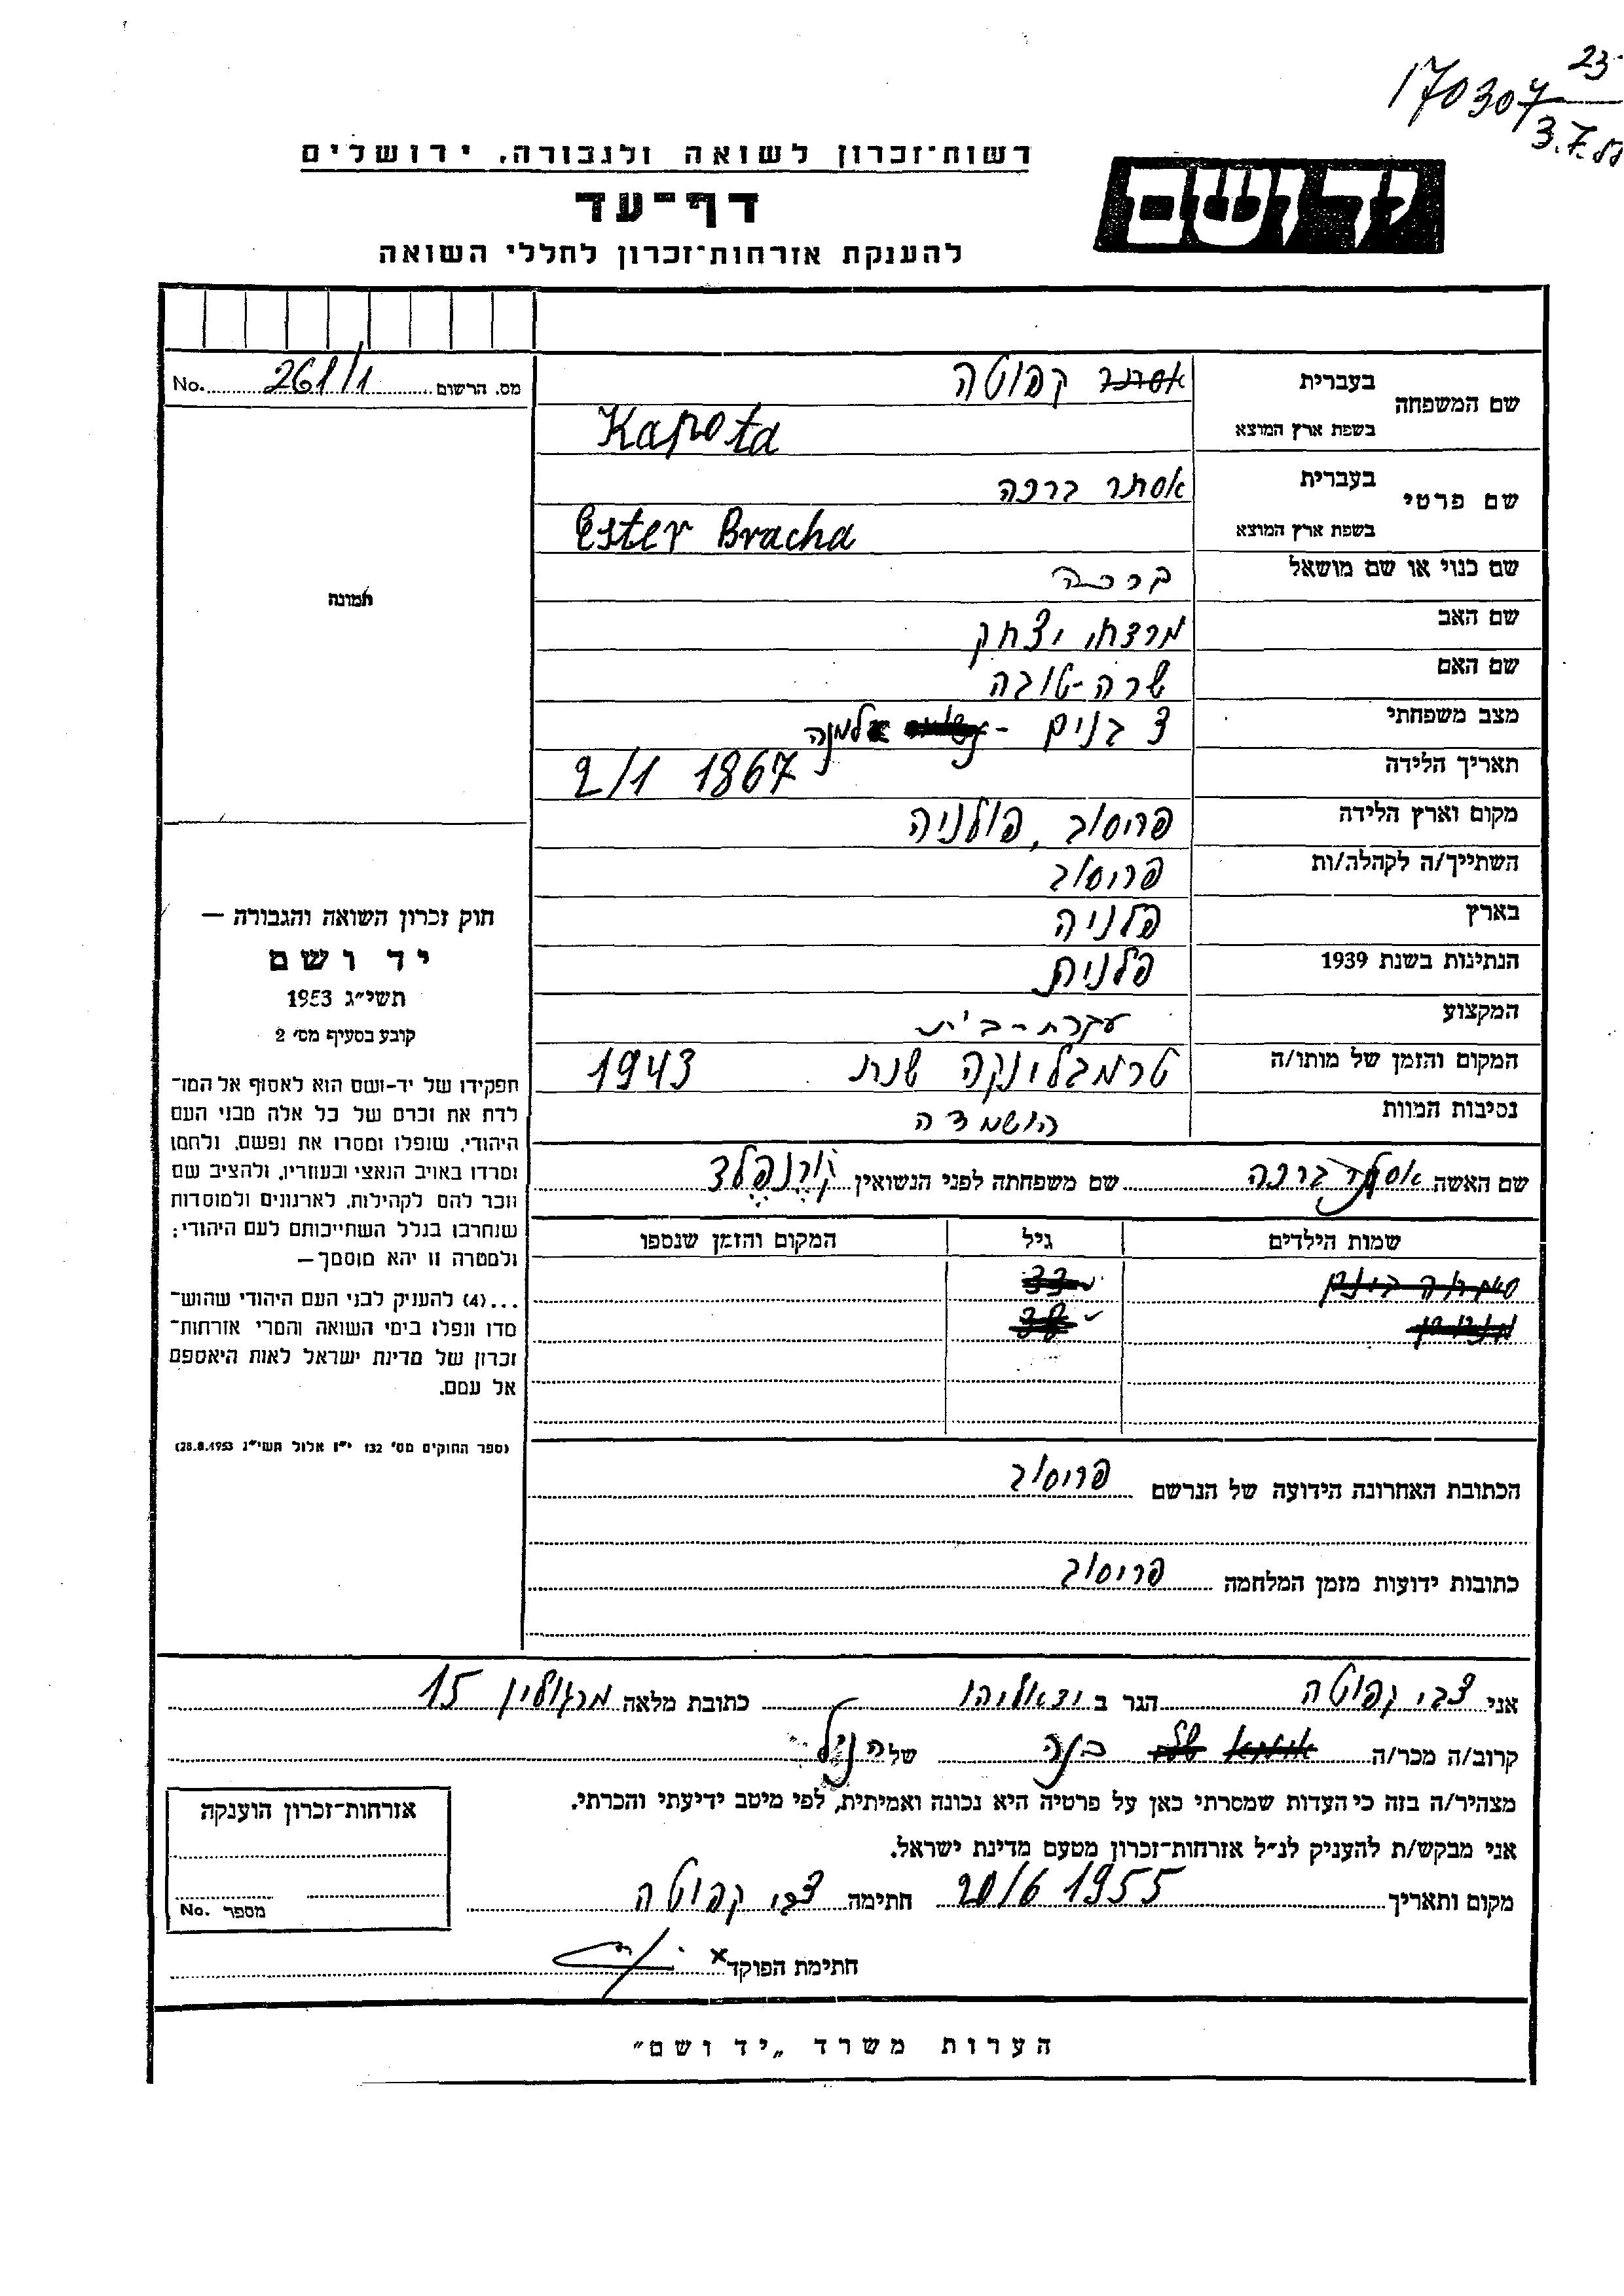 170307 23
3.7.
רשות־זכרון לשואה ולגבורה, ירושלים
יד ושם
דף־עד
להענקת אזרחות־זכרון לחללי השואה
מס. הרשום 261/1 No.
שם המשפחה
בעברית
אסתר קפוטה
בשפת ארץ המוצא
Kapota
שם פרטי
בעברית
אסתר ברכה
בשפת ארץ המוצא
Ester Bracha
שם כנוי או שם מושאל ברכה
שם האב מרדכי יצחק
שם האם שרה-טובה
מצב משפחתי 3 בנים - אלמנה
תאריך הלידה 2/1 1867
מקום וארץ הלידה פריסוב, פולניה
השתייך/ה לקהלה/ות פריסוב
בארץ פלניה
הנתינות בשנת 1939 פלנית
המקצוע עקרת-בית
המקום והזמן של מותו/ה טרמבלינקה שנת 1943
נסיבות המוות הושמדה
שם האשה אסתר ברכה שם משפחתה לפני הנשואין קורנפלד
שמות הילדים גיל המקום והזמן שנספו
הכתובת האחרונה הידועה של הנרשם פריסוב
כתובות ידועות מזמן המלחמה פריסוב
תמונה
חוק זכרון השואה והגבורה —
יד ושם
תשי״ג 1953
קובע בסעיף מס׳ 2
תפקידו של יד-ושם הוא לאסוף אל המו־
לדת את זכרם של כל אלה מבני העם
היהודי, שנפלו ומסרו את נפשם, נלחמו
ומרדו באויב הנאצי ובעוזריו, ולהציב שם
וזכר להם לקהילות, לארגונים ולמוסדות
שנחרבו בגלל השתייכותם לעם היהודי;
ולמטרה זו יהא מוסמך—
...(4) להעניק לבני העם היהודי שהוש־
מדו ונפלו בימי השואה והמרי אזרחות־
זכרון של מדינת ישראל לאות היאספם
אל עמם.
(ספר החוקים מס׳ 132 י״ז אלול תשי״ג 28.8.1953)
אני צבי קפוטה הגר ב כתובת מלאה מרגולין 15
קרוב/ה מכר/ה בנה של הנ״ל
מצהיר/ה בזה כי העדות שמסרתי כאן על פרטיה היא נכונה ואמיתית, לפי מיטב ידיעתי והכרתי.
אני מבקש/ת להעניק לנ״ל אזרחות־זכרון מטעם מדינת ישראל.
מקום ותאריך 20/6 1955 חתימה צבי קפוטה
חתימת הפוקד x
אזרחות־זכרון הוענקה
מספר No.
הערות משרד „יד ושם״